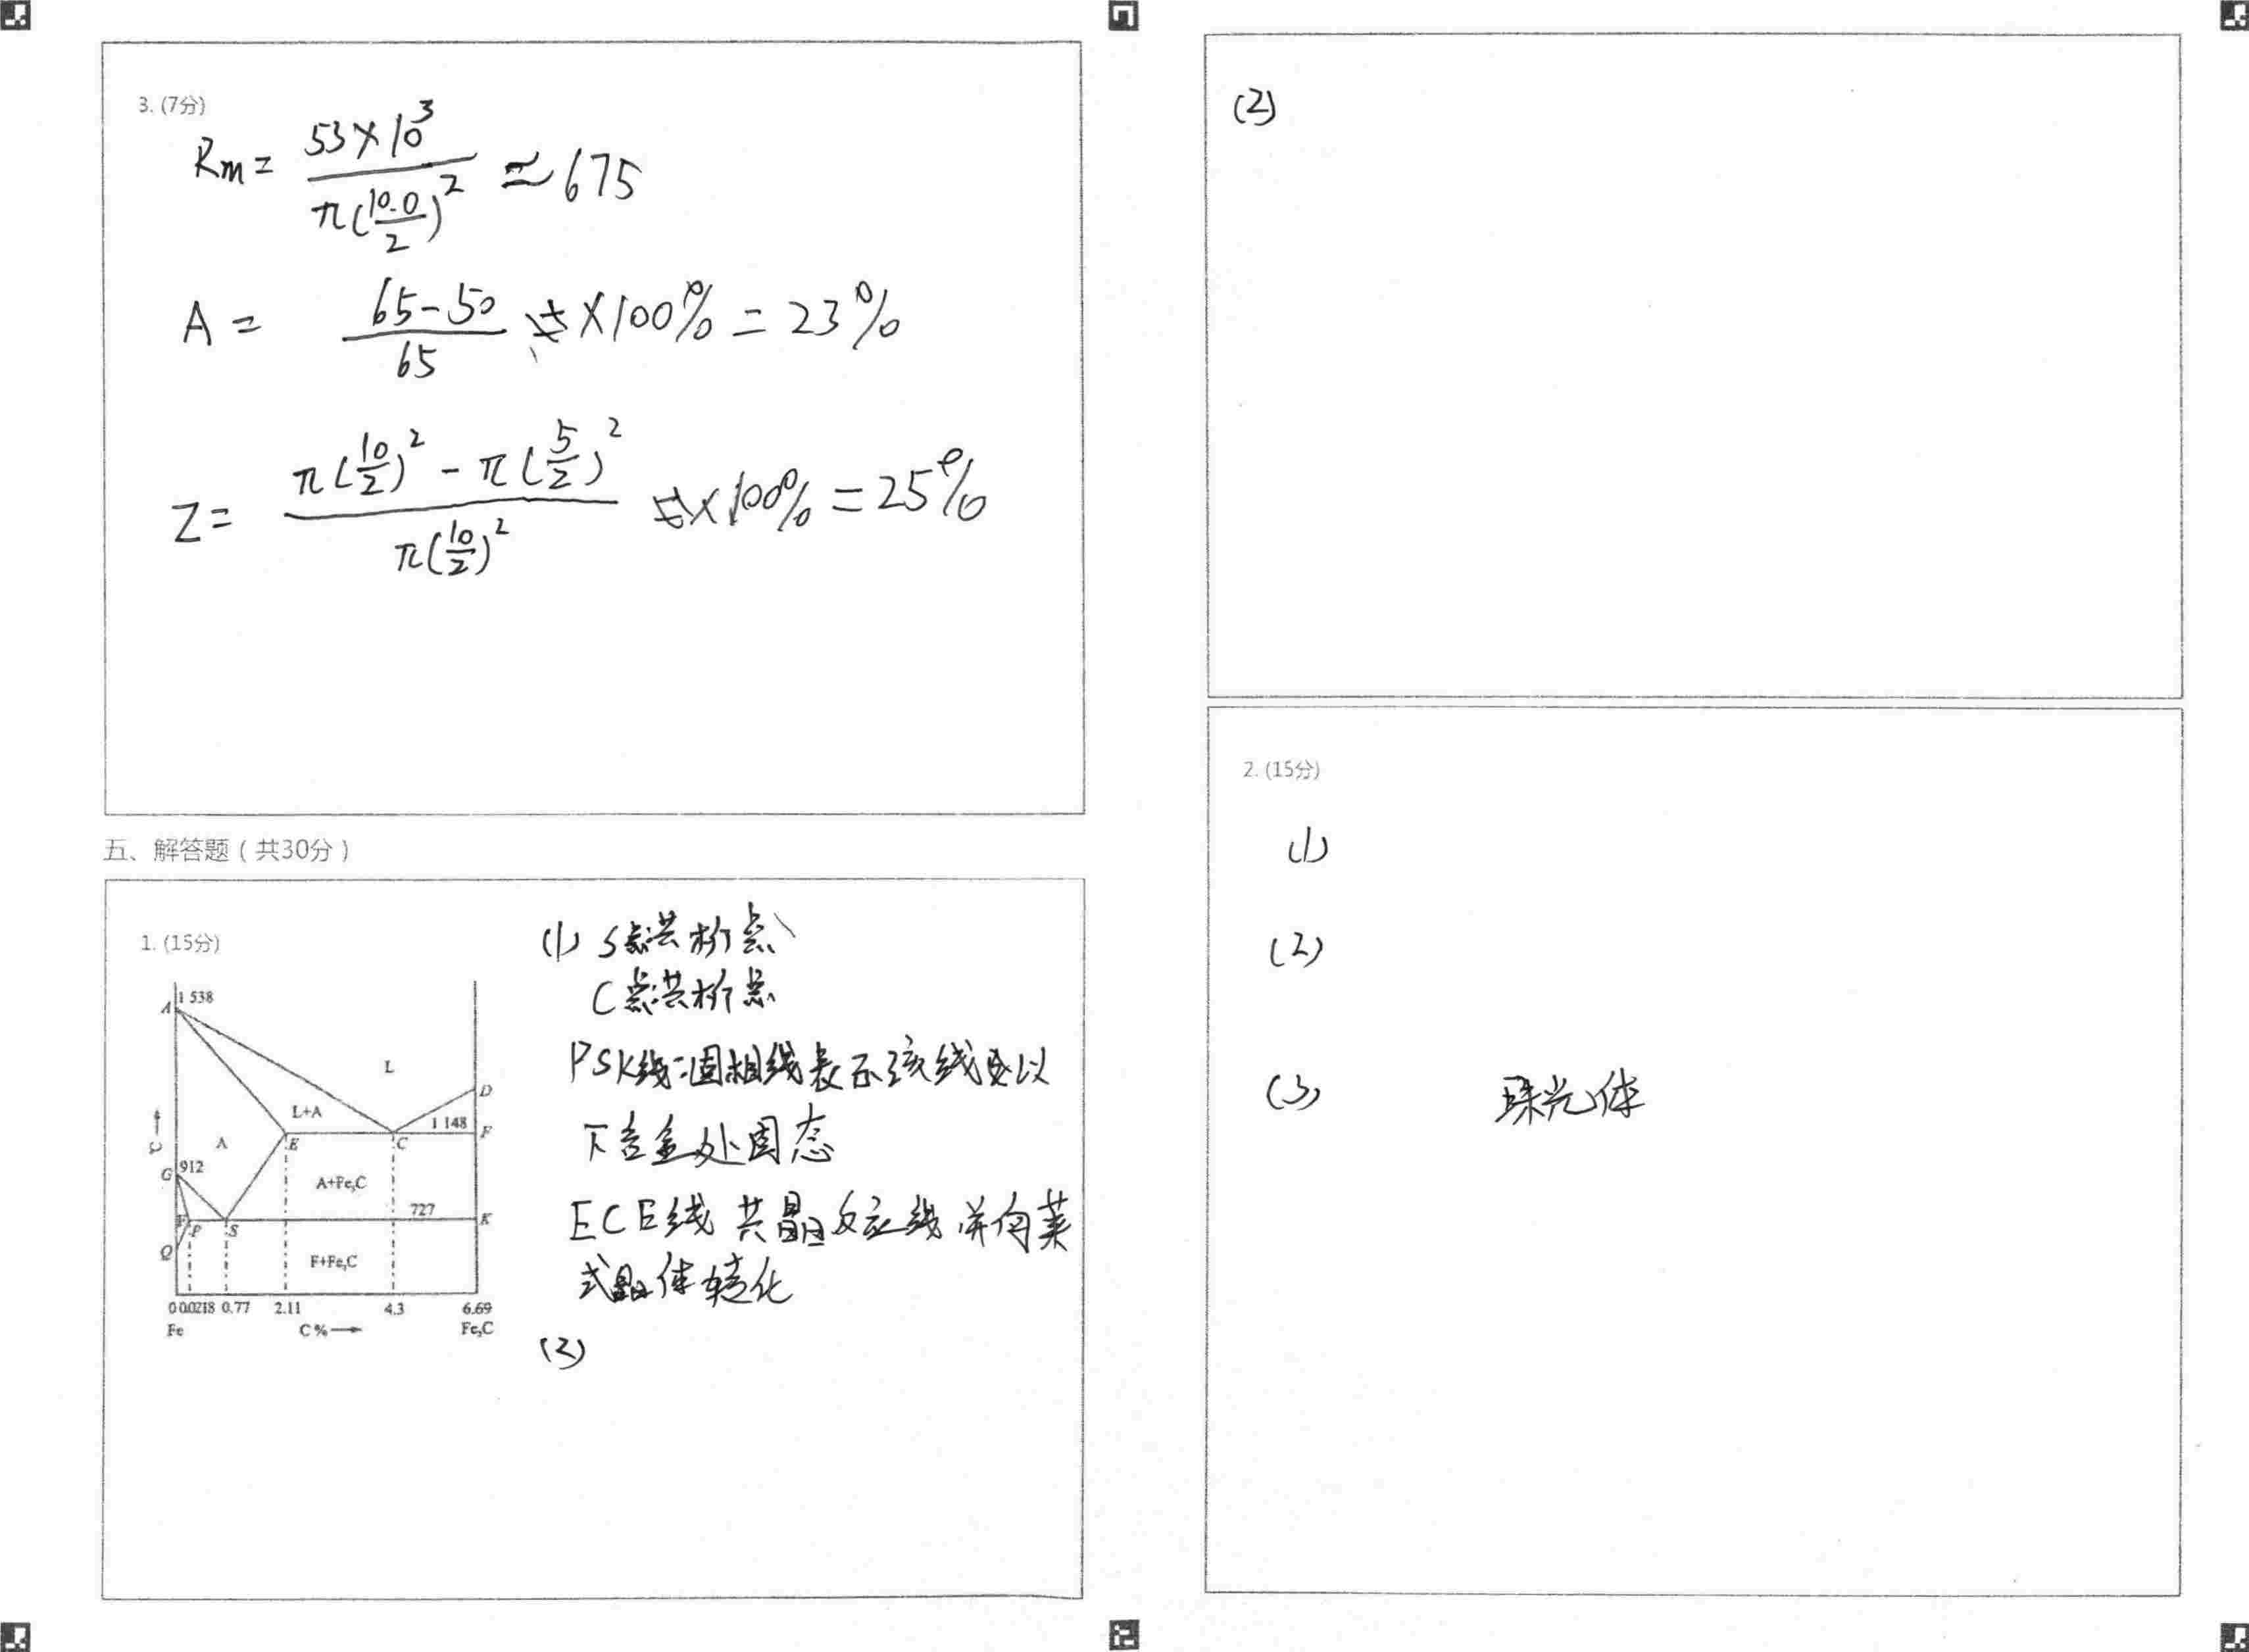 3. (7分)
Rm = \frac{53×10^3}{π(\frac{10.0}{2})^2} ≈ 675
A = \frac{65-50}{65} ×100% = 23%
Z = \frac{π(\frac{10}{2})^2 - π(\frac{5}{2})^2}{π(\frac{10}{2})^2} ×100% = 25%
五、解答题（共30分）
1. (15分)
(1) S点:共析点
C点:共析点
PSK线:固相线表示该线以
下合金处固态
ECE线 共晶反应线 并向莱
式晶体转化
(2)
A
1 538
L
D
L+A
1 148
F
℃
A
E
C
G
912
A+Fe₃C
727
F
P
S
K
Q
F+Fe₃C
0 0.0218 0.77 2.11 4.3 6.69
Fe C% Fe₃C
(2)
2. (15分)
(1)
(2)
(3) 珠光体